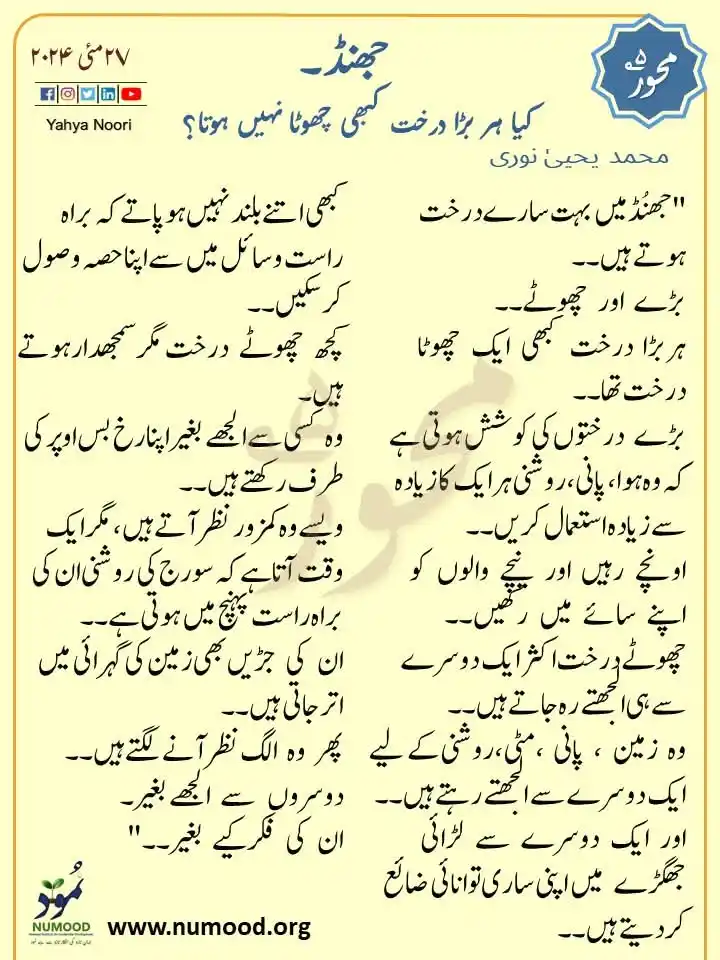 ۲۷ مئی ۲۰۲۴
Yahya Noori
جھنڈ۔
محور
کیا ہر بڑا درخت کبھی چھوٹا نہیں ہوتا؟
محمد یحییٰ نوری
"جھنُڈ میں بہت سارے درخت
ہوتے ہیں۔۔
بڑے اور چھوٹے۔۔
ہر بڑا درخت کبھی ایک چھوٹا
درخت تھا۔۔
بڑے درختوں کی کوشش ہوتی ہے
کہ وہ ہوا، پانی، روشنی ہر ایک کا زیادہ
سے زیادہ استعمال کریں۔۔
اونچے رہیں اور نیچے والوں کو
اپنے سائے میں رکھیں۔۔
چھوٹے درخت اکثر ایک دوسرے
سے ہی الجھتے رہ جاتے ہیں۔۔
وہ زمین ، پانی ،مٹی، روشنی کے لیے
ایک دوسرے سے الجھتے رہتے ہیں۔۔
اور ایک دوسرے سے لڑائی
جھگڑے میں اپنی ساری توانائی ضائع
کر دیتے ہیں۔۔
کبھی اتنے بلند نہیں ہو پاتے کہ براہ
راست وسائل میں سے اپنا حصہ وصول
کر سکیں۔۔
کچھ چھوٹے درخت مگر سمجھدار ہوتے
ہیں۔
وہ کسی سے الجھے بغیر اپنا رخ بس اوپر کی
طرف رکھتے ہیں۔۔
ویسے وہ کمزور نظر آتے ہیں، مگر ایک
وقت آتا ہے کہ سورج کی روشنی ان کی
براہ راست پہنچ میں ہوتی ہے۔۔
ان کی جڑیں بھی زمین کی گہرائی میں
اتر جاتی ہیں۔۔
پھر وہ الگ نظر آنے لگتے ہیں۔۔
دوسروں سے الجھے بغیر۔
ان کی فکر کیے بغیر۔۔"
نُمود
NUMOOD
www.numood.org